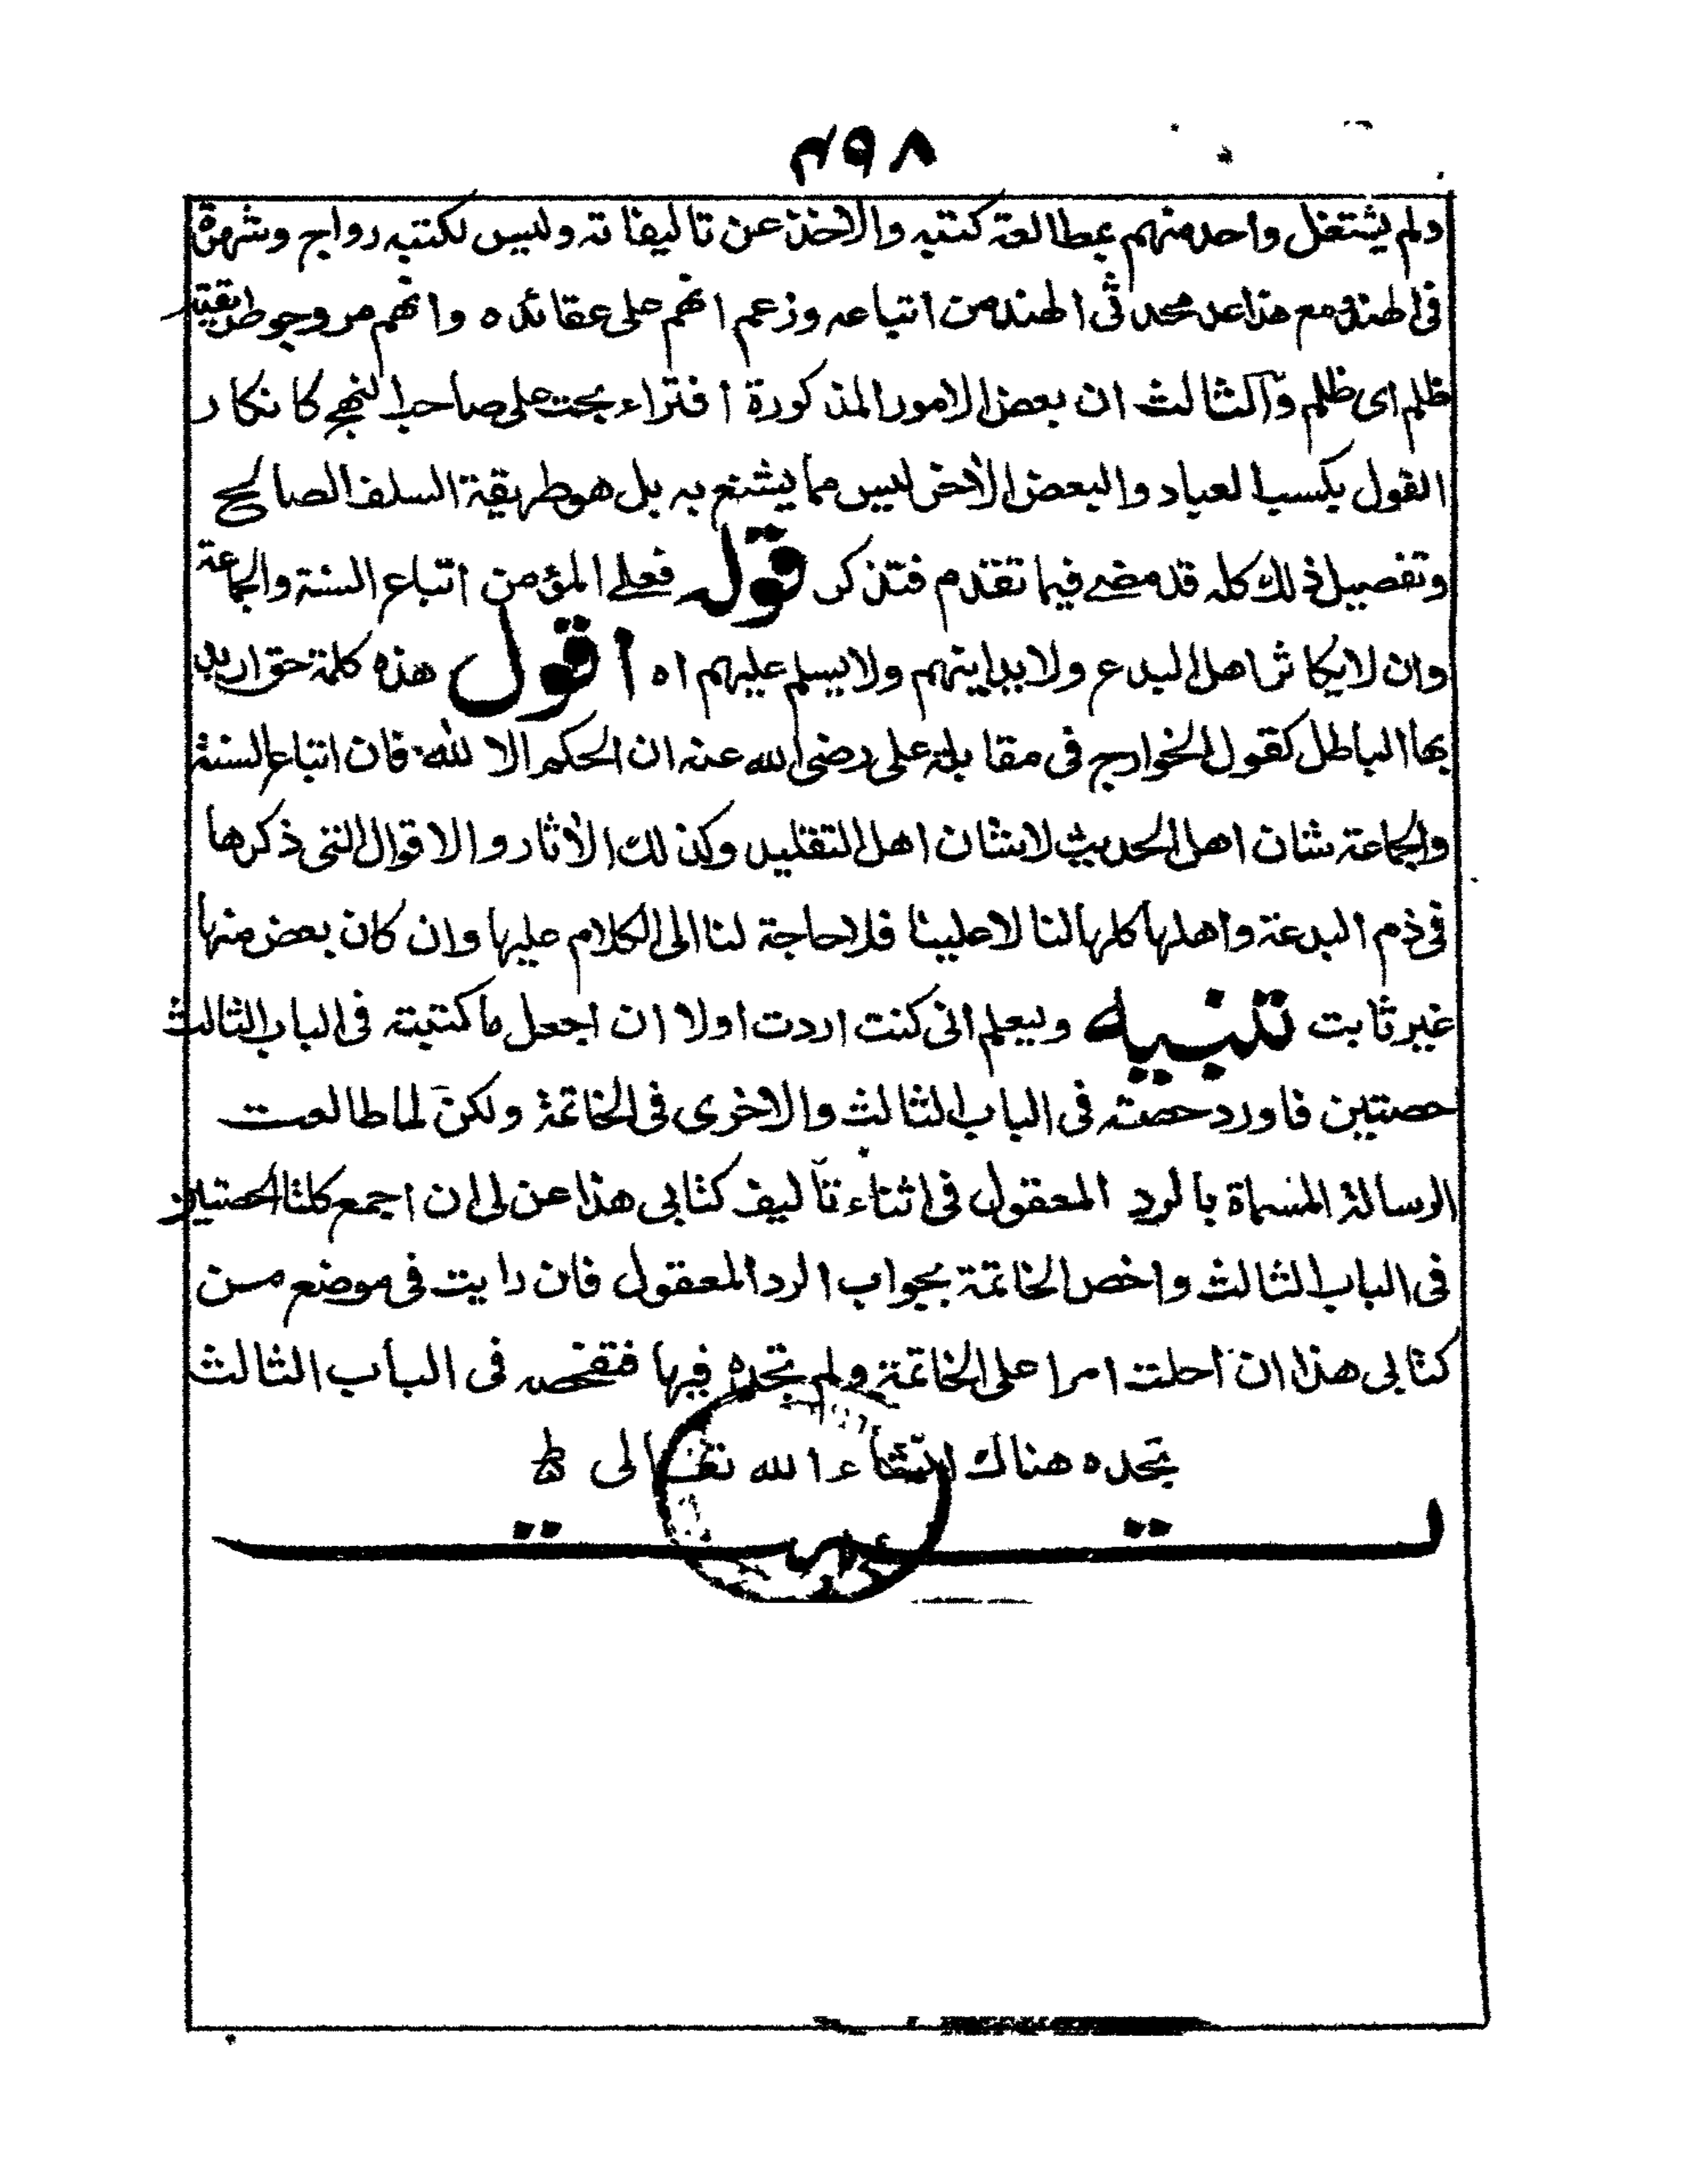 ۴۹۸
ولم يشتغل واحد منهم بمطالعة كتبه والاخذ عن تاليفاته وليس لكتبه رواج وشهرة
فى الهند ومع هذا عد محدثى الهند من اتباعه وزعم انهم على عقائده وانهم مروجو طريقته
ظلم اى ظلم وآلثالث ان بعض الامور المذكورة افتراء بحت على صاحب النهج كانكار
القول بكسب العباد والبعض الاخر ليس مما يشنع به بل هو طريقة السلف الصالح
وتفصيل ذلك كله قد مضے فيما تقدم فتذكر قوله فعلے المؤمن اتباع السنة والجماعة
وان لايكاثر اهل البدع ولا يدانيهم ولا يسلم عليهم اه اقول هذه كلمة حق اريد
بها الباطل كقول الخوارج فى مقابلة على رضى الله عنه ان الحكم الا لله فان اتباع السنة
والجماعة شان اهل الحديث لاشان اهل التقليد وكذلك الأثار والاقوال التى ذكرها
فى ذم البدعة واهلها كلها لنا لا علينا فلا حاجة لنا الى الكلام عليها وان كان بعض منها
غير ثابت تنبيه وليعلم انى كنت اردت اولا ان اجعل ما كتبته فى الباب الثالث
حصتين فاورد حصته فى الباب الثالث والاخرى فى الخاتمة ولكن لما طالعت
الرسالة المسماة بالرد المعقول فى اثناء تاليف كتابى هذا عن لى ان اجمع كلتا الحصتين
فى الباب الثالث واخص الخاتمة بجواب الرد المعقول فان رايت فى موضع من
كتابى هذا ان احلت امرا على الخاتمة ولم تجده فيها فتفحصه فى الباب الثالث
تجده هناك انشاء الله تعالى
تمت